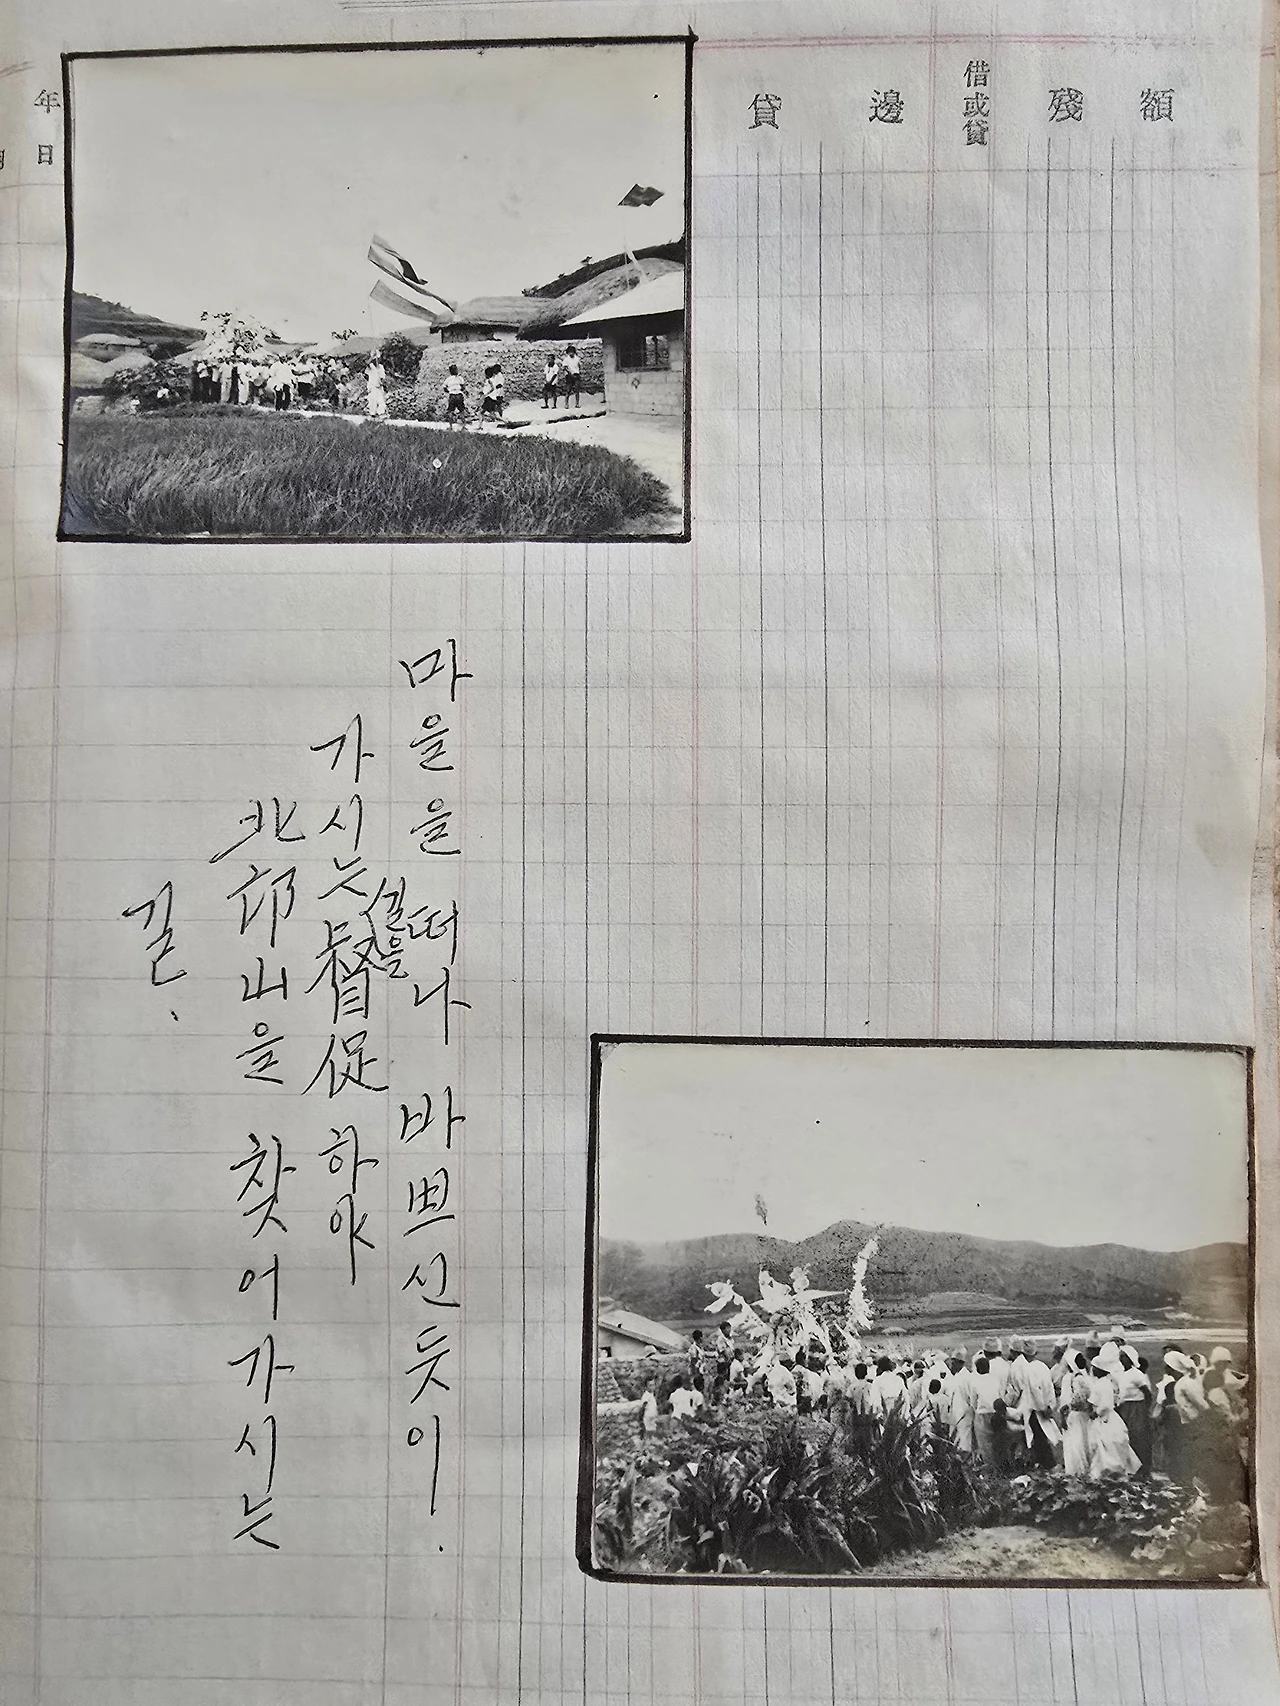 年
日
貸邊
借或貸
殘額
마을을 떠나 바쁘신 듯이.
가시는 길을 督促하야
北邙山을 찾어가시는
길.